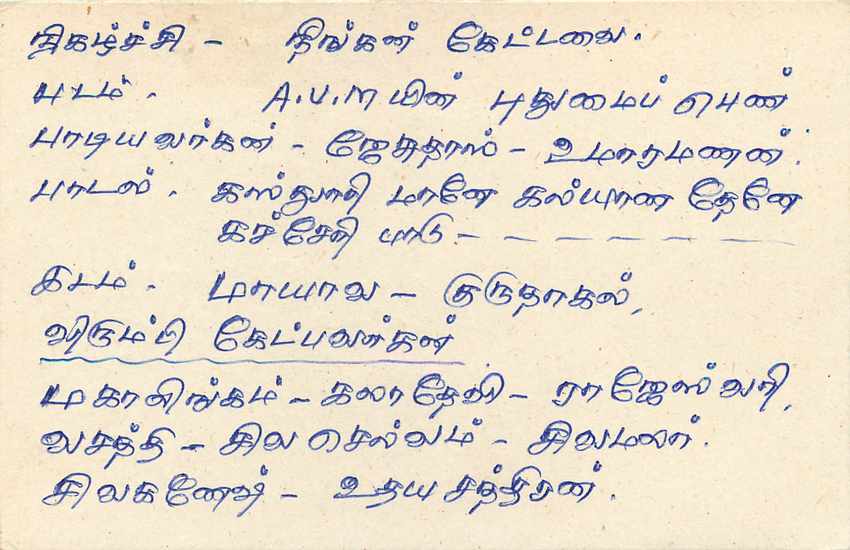 நிகழ்ச்சி - நீங்கள் கேட்டவை.
படம். A.V.M யின் புதுமைப் பெண்
பாடியவர்கள் - ஜேசுதாஸ் - உமாரமணன்.
பாடல். கஸ்தூரி மானே கல்யாண தேனே
கச்சேரி பாடு - - - - - - -
இடம். மாயாவ - குருநாகல்,
விரும்பி கேட்பவர்கள்
மகாலிங்கம் - கலாதேவி - ராஜேஸ்வரி,
வசந்தி - சிவசெல்வம் - சிவமலர்.
சிவகணேஷ் - உதயசந்திரன்.